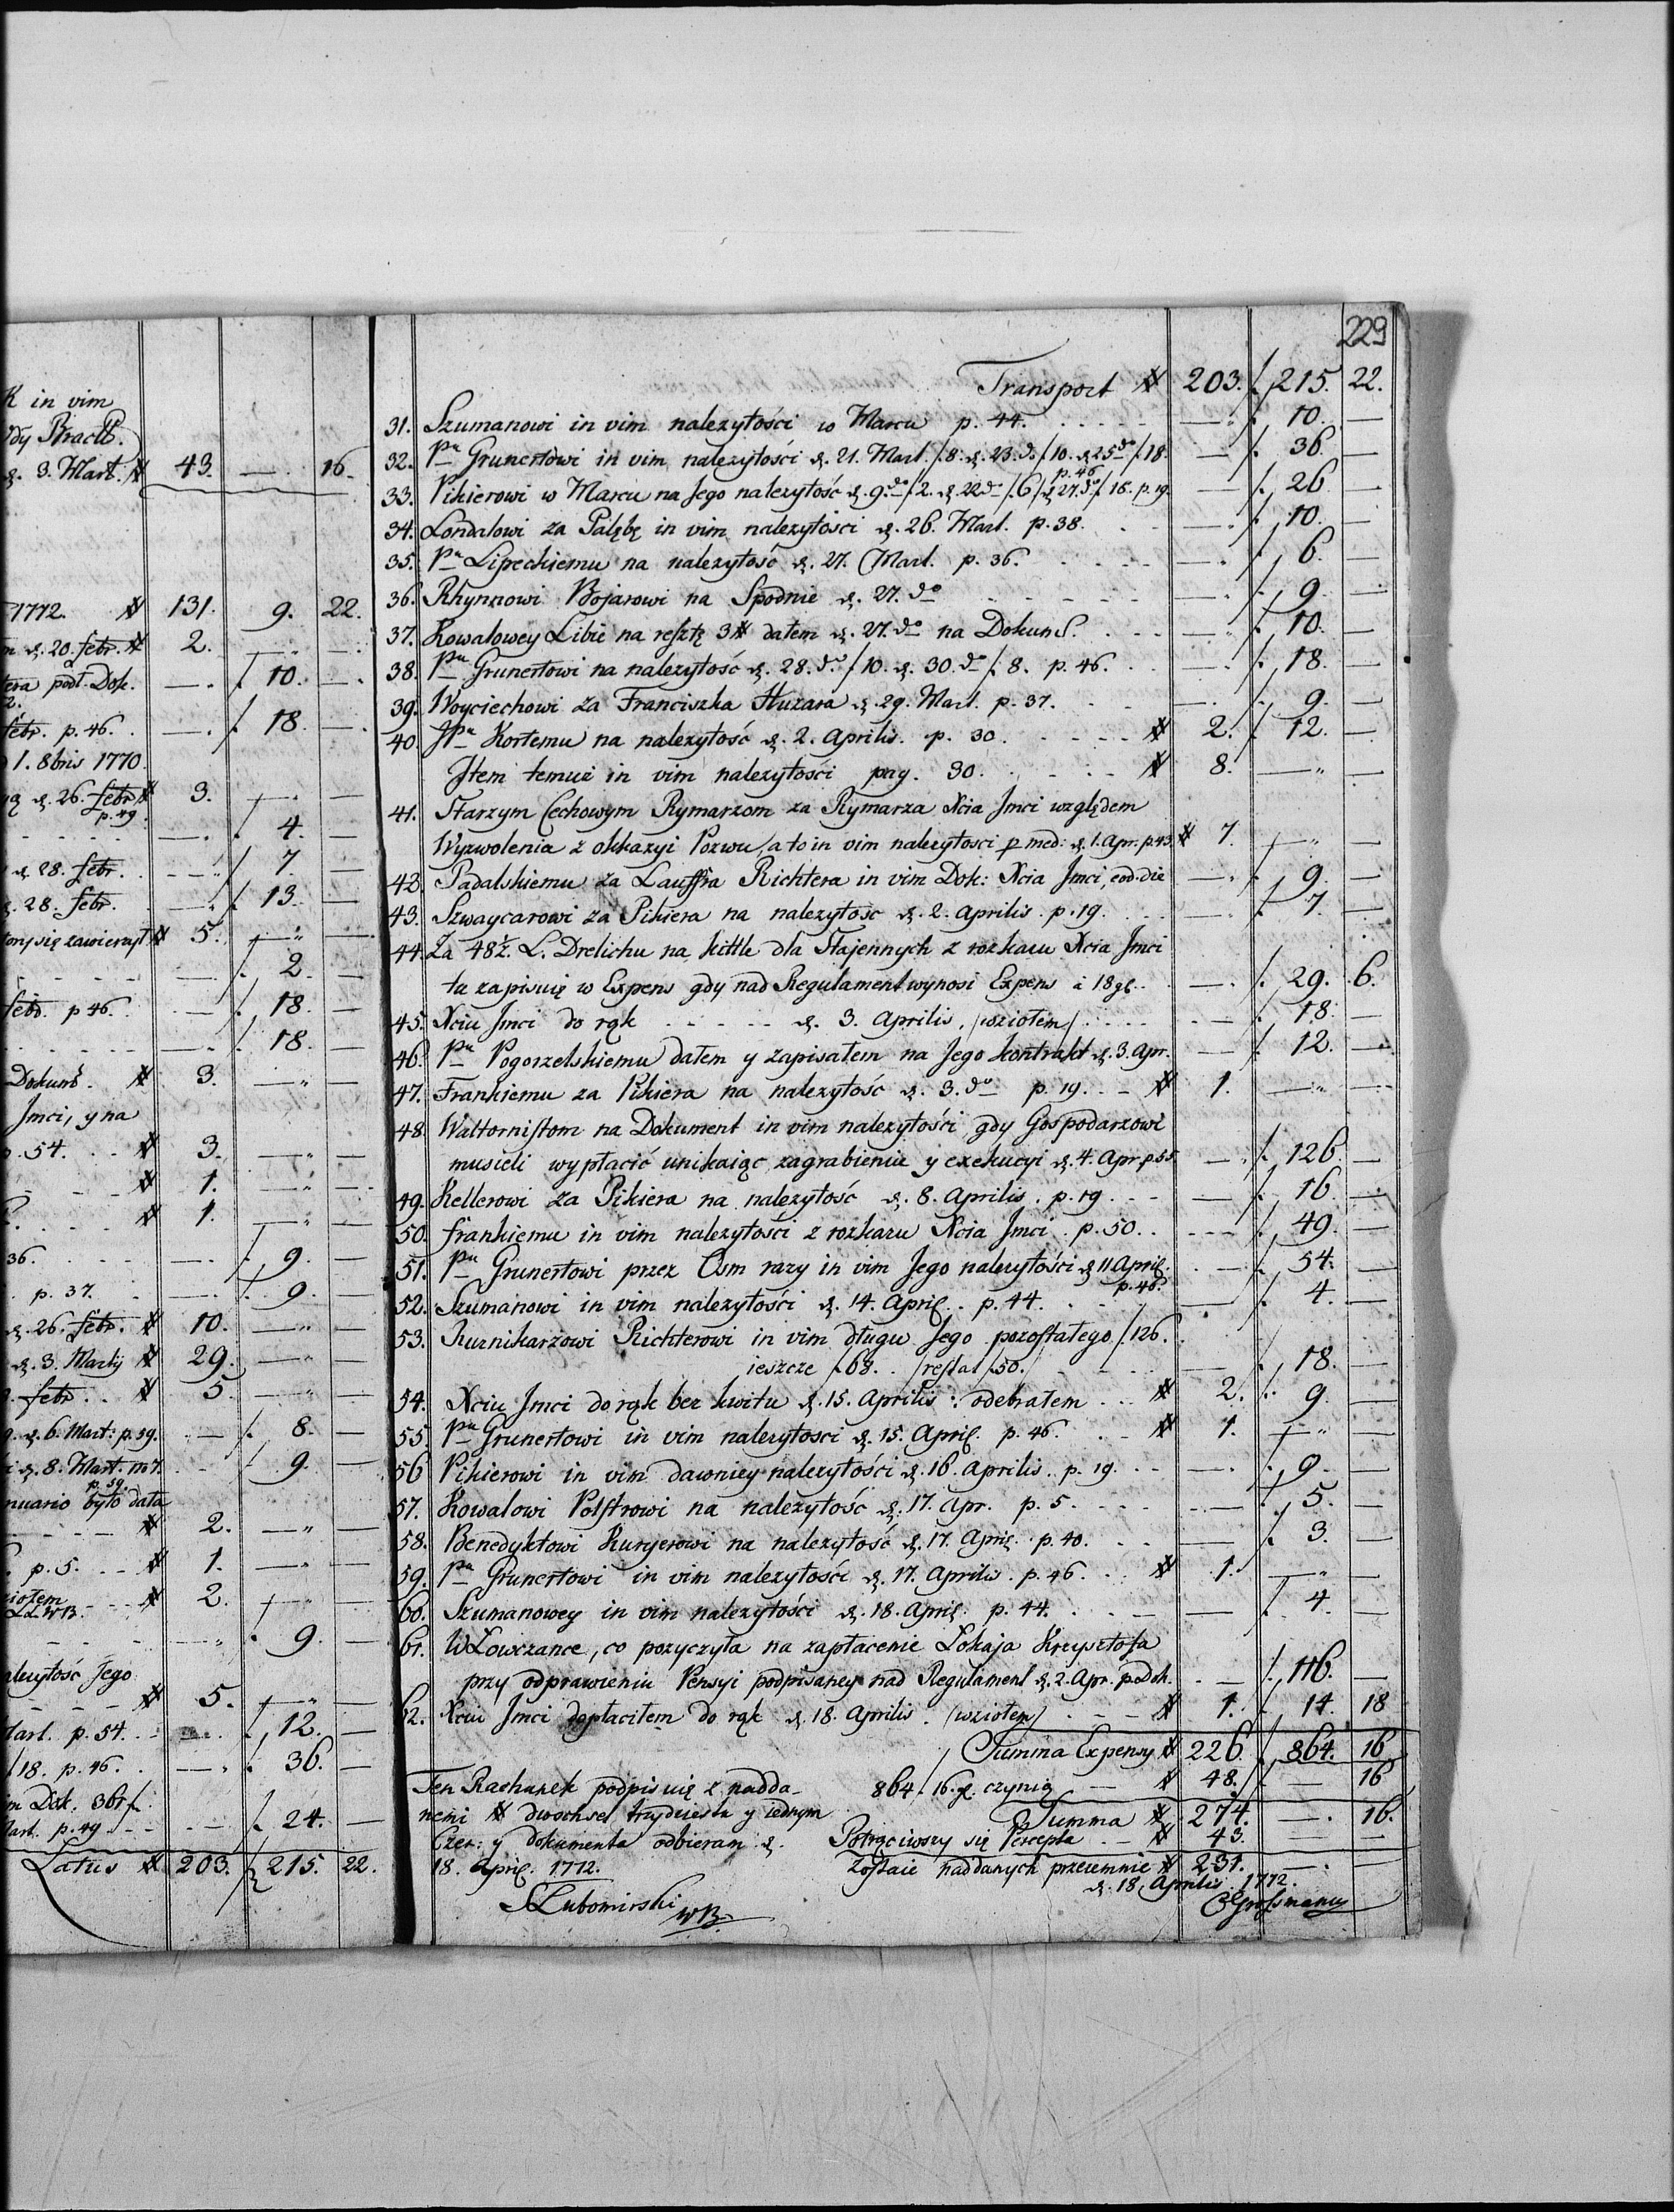 K in vim
dy Bractt.
d. 3. Mart. # 43. — 16.
1772. # 131. 9. 22.
d. 20. febr. # 2. — —
tera podł. Dok. — /. 10. —
2.
febr. p. 46. — /. 18. —
1. 8bris 1770.
d. 26. febr. # 3. — —
p. 49.
— /. 4. —
d. 28. febr. — /. 7. —
d. 28. febr. — /. 13. —
tory się zawierzył # 5. — —
— /. 2. —
febr. p 46. — /. 18. —
— /. 18. —
Dokumt. # 3. — —
Jmci, y na
p. 54. # 3. — —
# 1. — —
# 1. — —
36. — /. 9. —
p. 37. — /. 9. —
d. 26. febr. # 10. — —
d. 3. Martij # 29. — —
febr. # 5. — —
d. 6. Mart: p. 59. — /. 8. —
d. 8. Mart. — /. 9. —
p. 59.
nuario było data
# 2. — —
p. 5. # 1. — —
ziołem # 2. — —
— /. 9. —
ależytość Jego
# 5. — —
Mart. p. 54. — /. 12. —
/18. p. 46. — /. 36. —
Dok. 361 f.
Mart. p. 49 — /. 24. —
Latus # 203. /. 215. 22.
229
Transport # 203. /. 215. 22.
31. Szumanowi in vim nalezytości w Marcu p. 44. — /. 10. —
32. Pu Grunertowi in vim nalezytości d. 21. Mart. /. 8. d. 23. do /. 10. d. 25 do /. 18. — /. 36. —
p. 46
33. Pikierowi w Marcu na Jego nalezytość d. 9. do /. 2. d. 22 do /. 6 /. d 27. do /. 18. p. 19. — /. 26 —
34. Londalowi za Palębę in vim nalezytości d. 26. Mart. p. 38. — /. 10. —
35. Pu Lipeckiemu na nalezytość d. 27. Mart. p. 36. — /. 6. —
36. Rhynnowi Bojarowi na Spodnie d. 27. do — /. 9. —
37. Kowalowey Libie na resztę 3# dałem d. 27. do na Dokumt. — /. 10. —
38. Pu Grunertowi na nalezytość d. 28. do /. 10. d. 30. do /. 8. p. 46. — /. 18. —
39. Woyciechowi za Franciszka Huzara d. 29. Mart. p. 37. — /. 9. —
40. JPu Kortemu na nalezytość d. 2. Aprilis. p. 30. # 2. /. 12. —
Jtem temuż in vim nalezytosci pag. 30. # 8. — —
41. Starzym Cechowym Rymarzom za Rymarza Xcia Jmci względem
Wyzwolenia z okkazyi Pozwu, a to in vim nalezytosci p med: d. 1. Apr. p. 43. # 7. — —
42. Padalskiemu za Lauffra Richtera in vim Dok: Xcia Jmci, eod. die — /. 9. —
43. Szwaycarowi za Pikiera na nalezytosc d. 2. Aprilis. p. 19. — /. 7. —
44. Za 48½. L. Drelichu na kittle dla Stajennych z rozkazu Xcia Jmci
tu zapisuię w Expens gdy nad Regulament wynosi Expens à 18 gl. — /. 29. 6.
45. Xciu Jmci do rąk d. 3. Aprilis. /wziołem/ — /. 18. —
46. Pu Pogorzelskiemu dałem y zapisałem na Jego kontrakt d. 3. Apr. — /. 12. —
47. Frankiemu za Pikiera na nalezytość d. 3. do p. 19. # 1. — —
48. Waltornistom na Dokument in vim nalezytości gdy Gospodarzowi
musieli wypłacić unikaiąc zagrabieniu y exekucyi d. 4. Apr. p. 55 — /. 126. —
49. Kellerowi za Pikiera na nalezytość d. 8. Aprilis. p. 19. — /. 16. —
50. Frankiemu in vim nalezytości z rozkazu Xcia Jmci p. 50. — /. 49. —
51. Pu Grunertowi przez Osm razy in vim Jego nalezytości d 11 April. — /. 54. —
p. 46.
52. Szumanowi in vim nalezytości d. 14. April. p. 44. — /. 4. —
53. Kurnikarzowi Richterowi in vim długu Jego pozostałego /. 126.
ieszcze /. 68. /restat /. 50./ — /. 18. —
54. Xciu Jmci do rąk bez kwitu d. 15. Aprilis: odebrałem # 2. /. 9. —
55. Pu Grunertowi in vim nalezytosci d. 15. April. p. 46. # 1. — —
56 Pikierowi in vim dawniey nalezytości d. 16. Aprilis. p. 19. — /. 9. —
57. Kowalowi Polstrowi na nalezytość d. 17. Apr. p. 5. — /. 5. —
58. Benedyktowi Kuryerowi na nalezytość d. 17. April. p. 40. — /. 3. —
59. Pu Grunertowi in vim nalezytości d. 17. Aprilis. p. 46. # 1. — —
60. Szumanowey in vim nalezytości d. 18. April. p. 44. — /. 4. —
61. W Łowczance, co pozyczyła na zapłacenie Lokaja Krzysztofa
przy odprawieniu Pensyi podpisaney nad Regulament d. 2. Apr. p. Dok. — /. 116. —
62. Xciu Jmci dopłaciłem do rąk d. 18. Aprilis. /wziołem/ # 1. /. 14. 18
Summa Expensy # 226. /. 864. 16
864 /. 16. gl. czynią # 48. — 16
Ten Rachunek podpisuię z nadda-
nemi # dwochset trzydziestu y iednym Summa # 274. — 16.
Czer: y dokumenta odbieram d. Potrąciwszy się Percepta # 43. — —
18. April. 1772. Zostaie naddanych przezemnie # 231. — —
d. 18. Aprilis. 1772.
SLubomirski WB. Grossmany